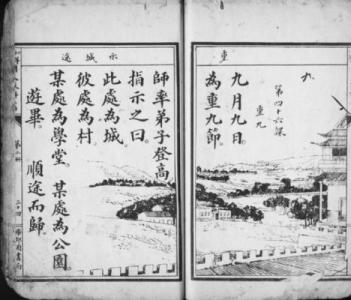 重
九
第四十六課
重九
九月九日。
為重九節。
師率弟子登高。
指示之曰。
此處為城。
彼處為村。
某處為學堂。某處為公園。
遊畢。順途而歸。
遠城示